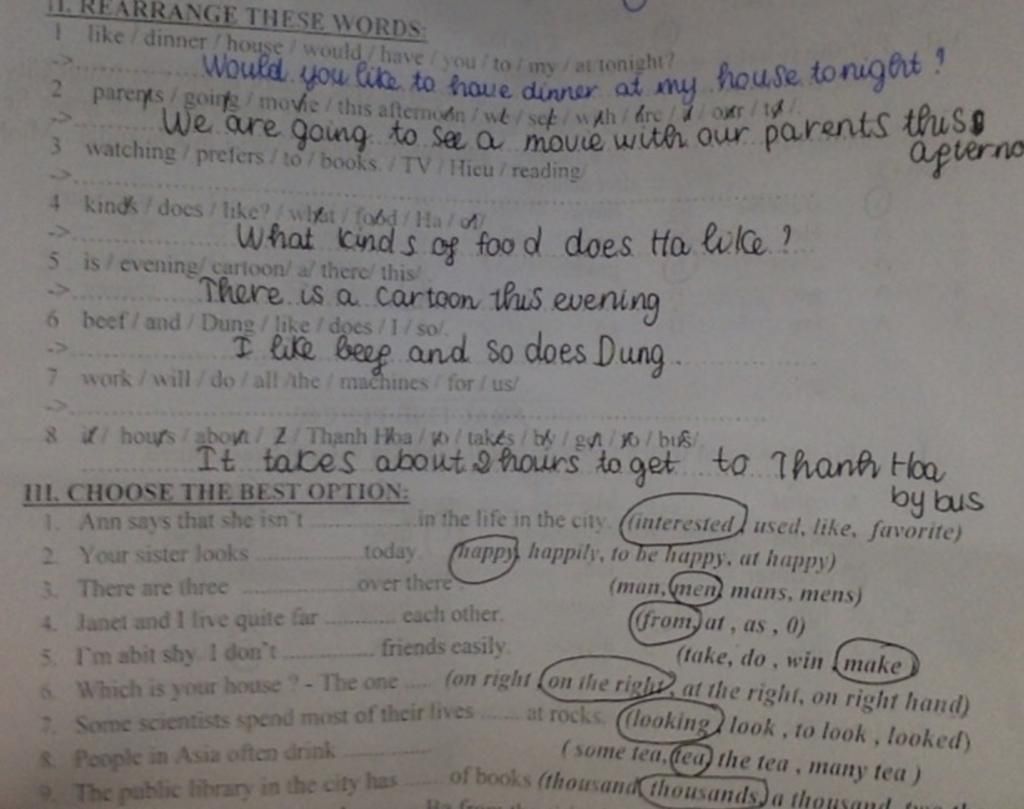 II. REARRANGE THESE WORDS:
1 like / dinner / house / would / have / you / to / my / at tonight?
-> Would you like to have dinner at my house tonight?
2 parents / going / movie / this afternoon / we / see / with / are / a / our / to /.
-> We are going to see a movie with our parents this
afterno
3 watching / prefers / to / books. / TV / Hieu / reading/
->
4 kinds / does / like? / what / food / Ha / of/
-> What kinds of food does Ha like?
5 is / evening/ cartoon/ a/ there/ this/
-> There is a cartoon this evening
6 beef / and / Dung / like / does / I / so/.
-> I like beef and so does Dung
7 work / will / do / all /the / machines / for / us/
->
8 it / hours / about / 2 / Thanh Hoa / to / takes / by / get / to / bus/
It takes about 2 hours to get to Thanh Hoa
by bus
III. CHOOSE THE BEST OPTION:
1. Ann says that she isn't ............... in the life in the city. (interested, used, like, favorite)
2. Your sister looks ............... today. (happy, happily, to be happy, at happy)
3. There are three ............... over there. (man, men, mans, mens)
4. Janet and I live quite far ............ each other. (from, at , as , 0)
5. I'm abit shy. I don't ............... friends easily. (take, do , win , make )
6. Which is your house ? - The one .... (on right , on the right, at the right, on right hand)
7. Some scientists spend most of their lives ...... at rocks. (looking, look , to look , looked)
8. People in Asia often drink ............... ( some tea, tea, the tea , many tea )
9. The public library in the city has ...... of books (thousand, thousands, a thousand,